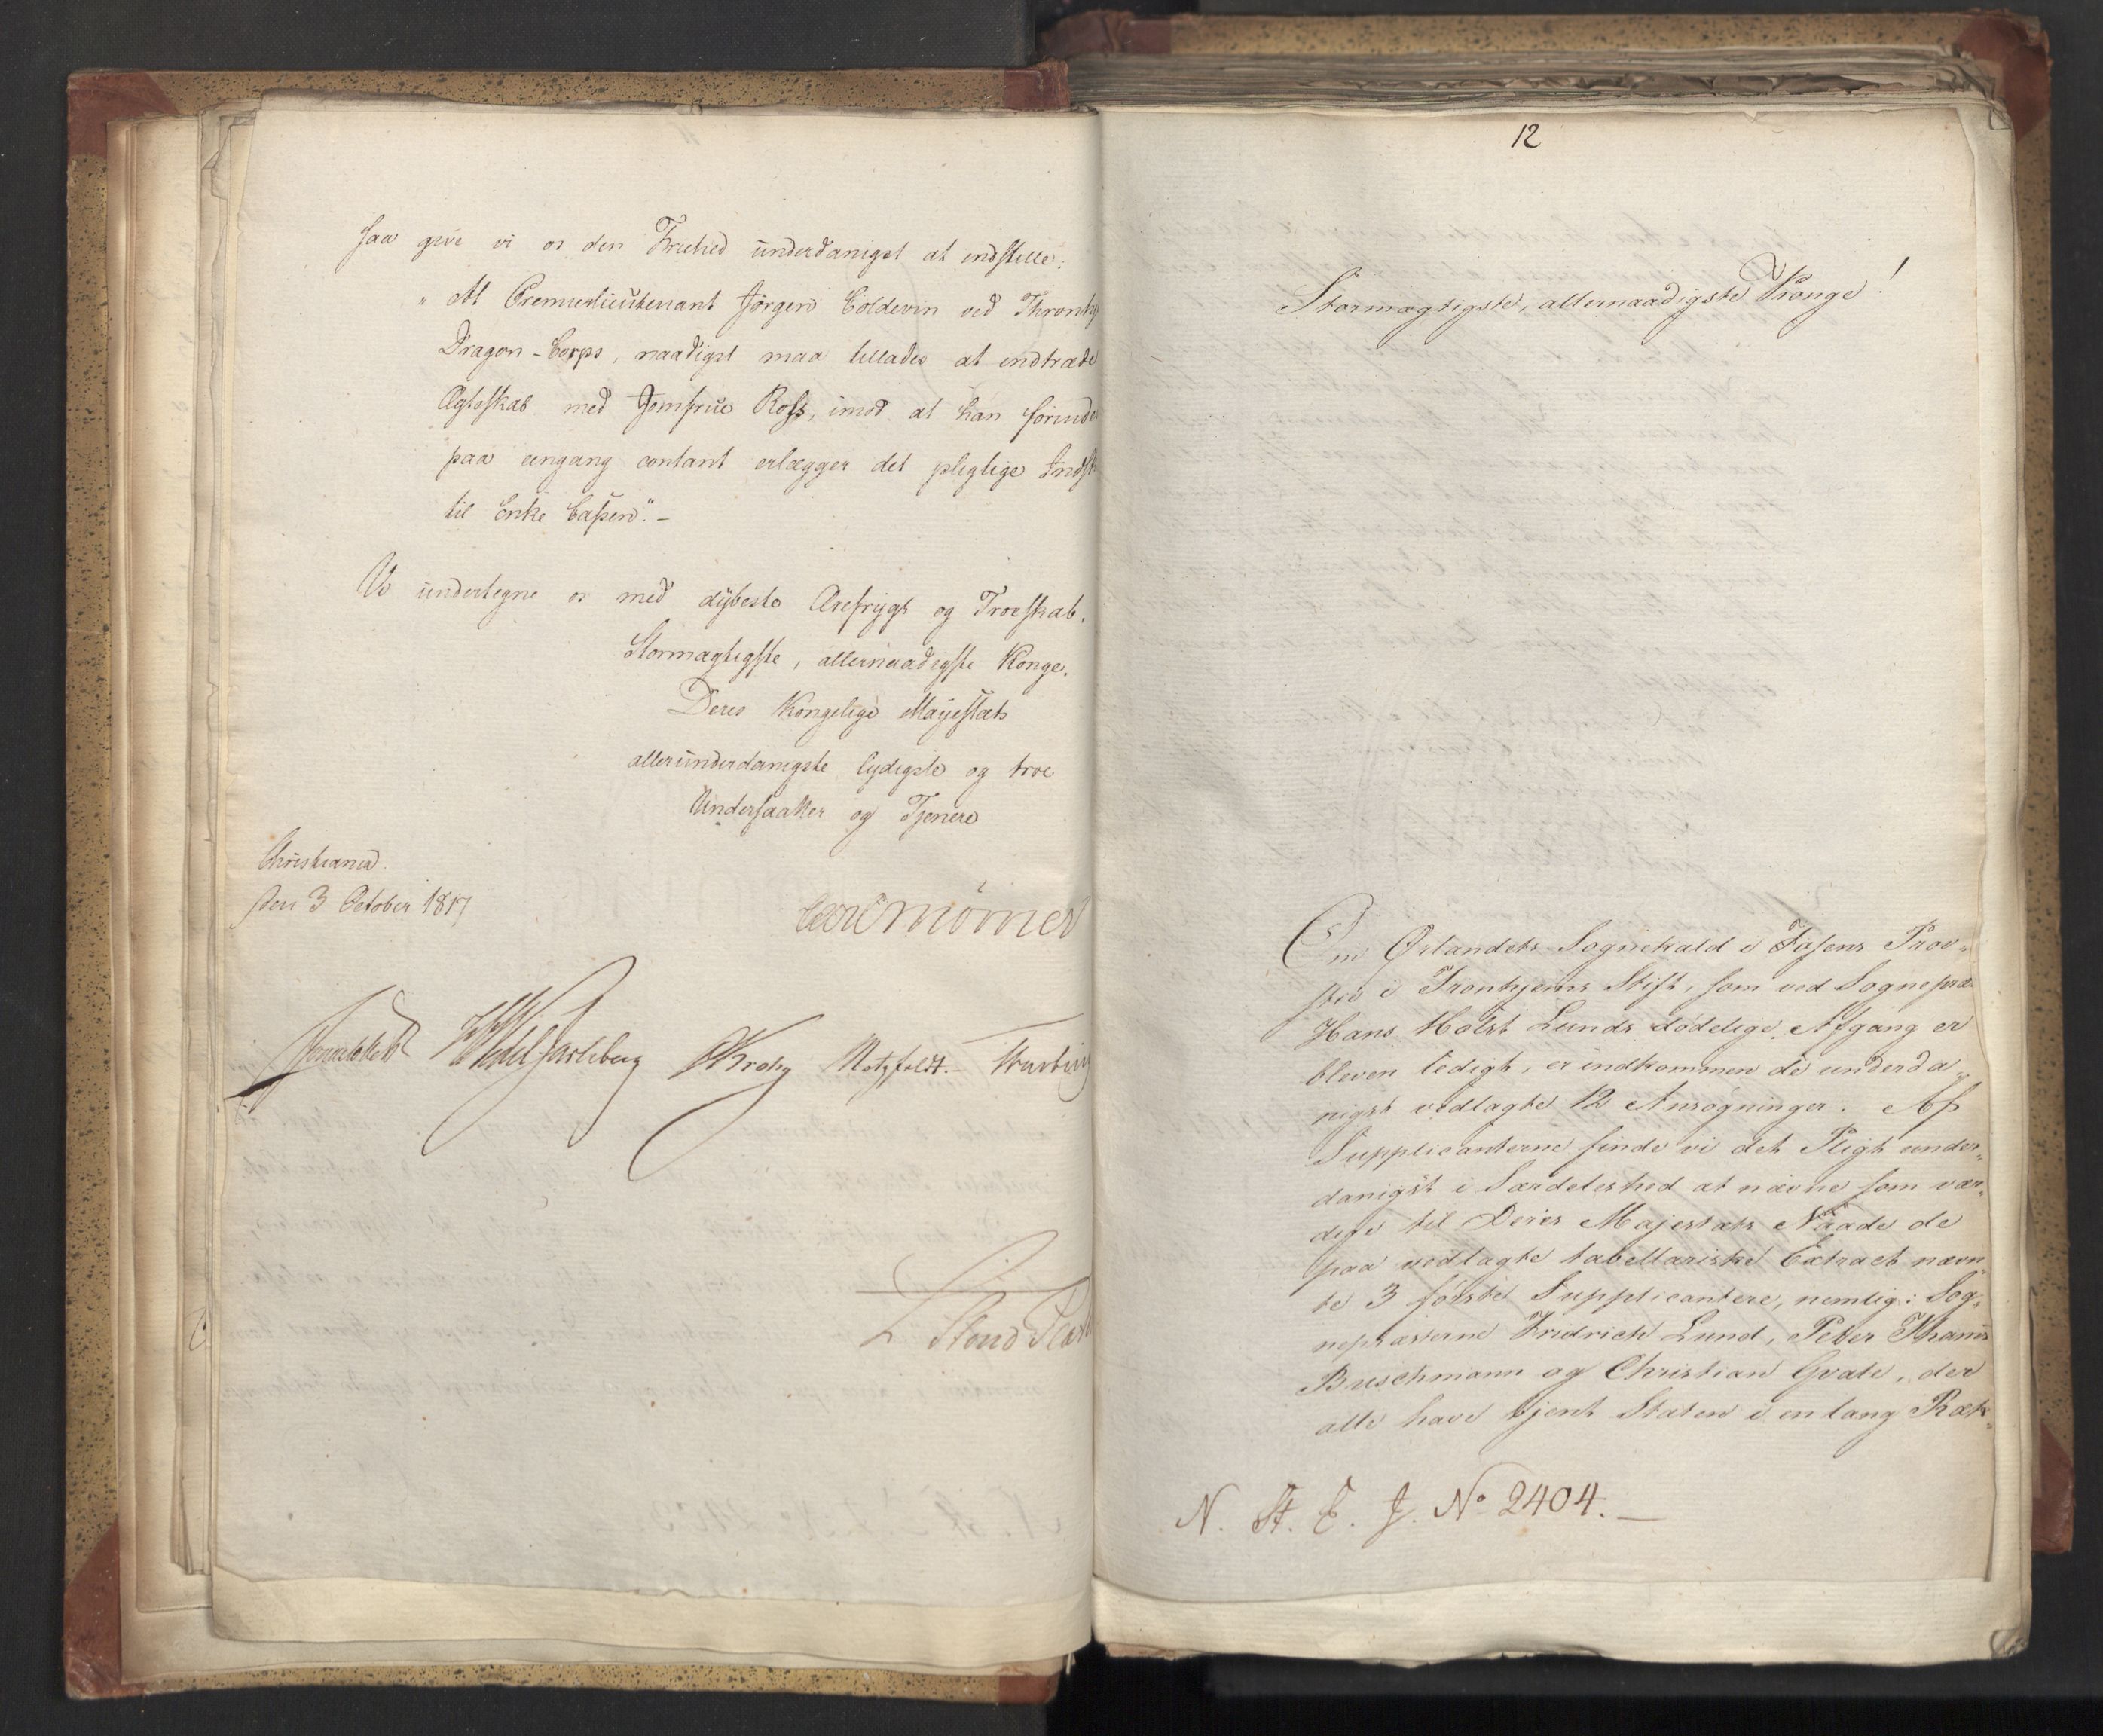 saa give vi os den Friehed underdanigst at indstille:
"At Premierlieutenant Jørgen Coldevin ved Thronhj
Dragon-Corps, naadigst maa tillades at indtræde
Ægteskab med Jomfrue Ross, imod at han forinde
paa eengang contant erlægger det pligtige Indsk
til Enke Cassen". –
Vi undertegne os med dybeste Ærefrygt og Troeskab.
Stormægtigste, allernaadigste Konge.
Deres Kongelige Mayestæts
allerunderdanigste lydigste og troe
Undersaatter og Tjenere
Christiania
den 3 October 1817
Carl Mörner
Sommerfeldt HWedel Jarlsberg CKrohg Motzfeldt.
12
Stormægtigste, allernaadigste Konge!
Om Ørlandets Sognekald i Fosens Prov-
stie i Tronhjems Stift, som ved Sognepræ
Hans Holst Lunds dødelige Afgang er
bleven ledigt, er indkommen de underda-
nigst vedlagte 12 Ansøgninger. Af
Supplicanterne finde vi det Pligt under-
danigst i Særdeleshed at nævne som vær-
dige til Deres Majestæts Naade de
paa vedlagte tabellariske Extract nævn-
te 3 første Supplicantere, nemlig: Sog-
nepræsterne Fridrich Lund, Peter Thams
Buschmann og Christian Gvale, der
alle have tjent Staten i en lang Ræk-
N. St. E. J. No 2404. –